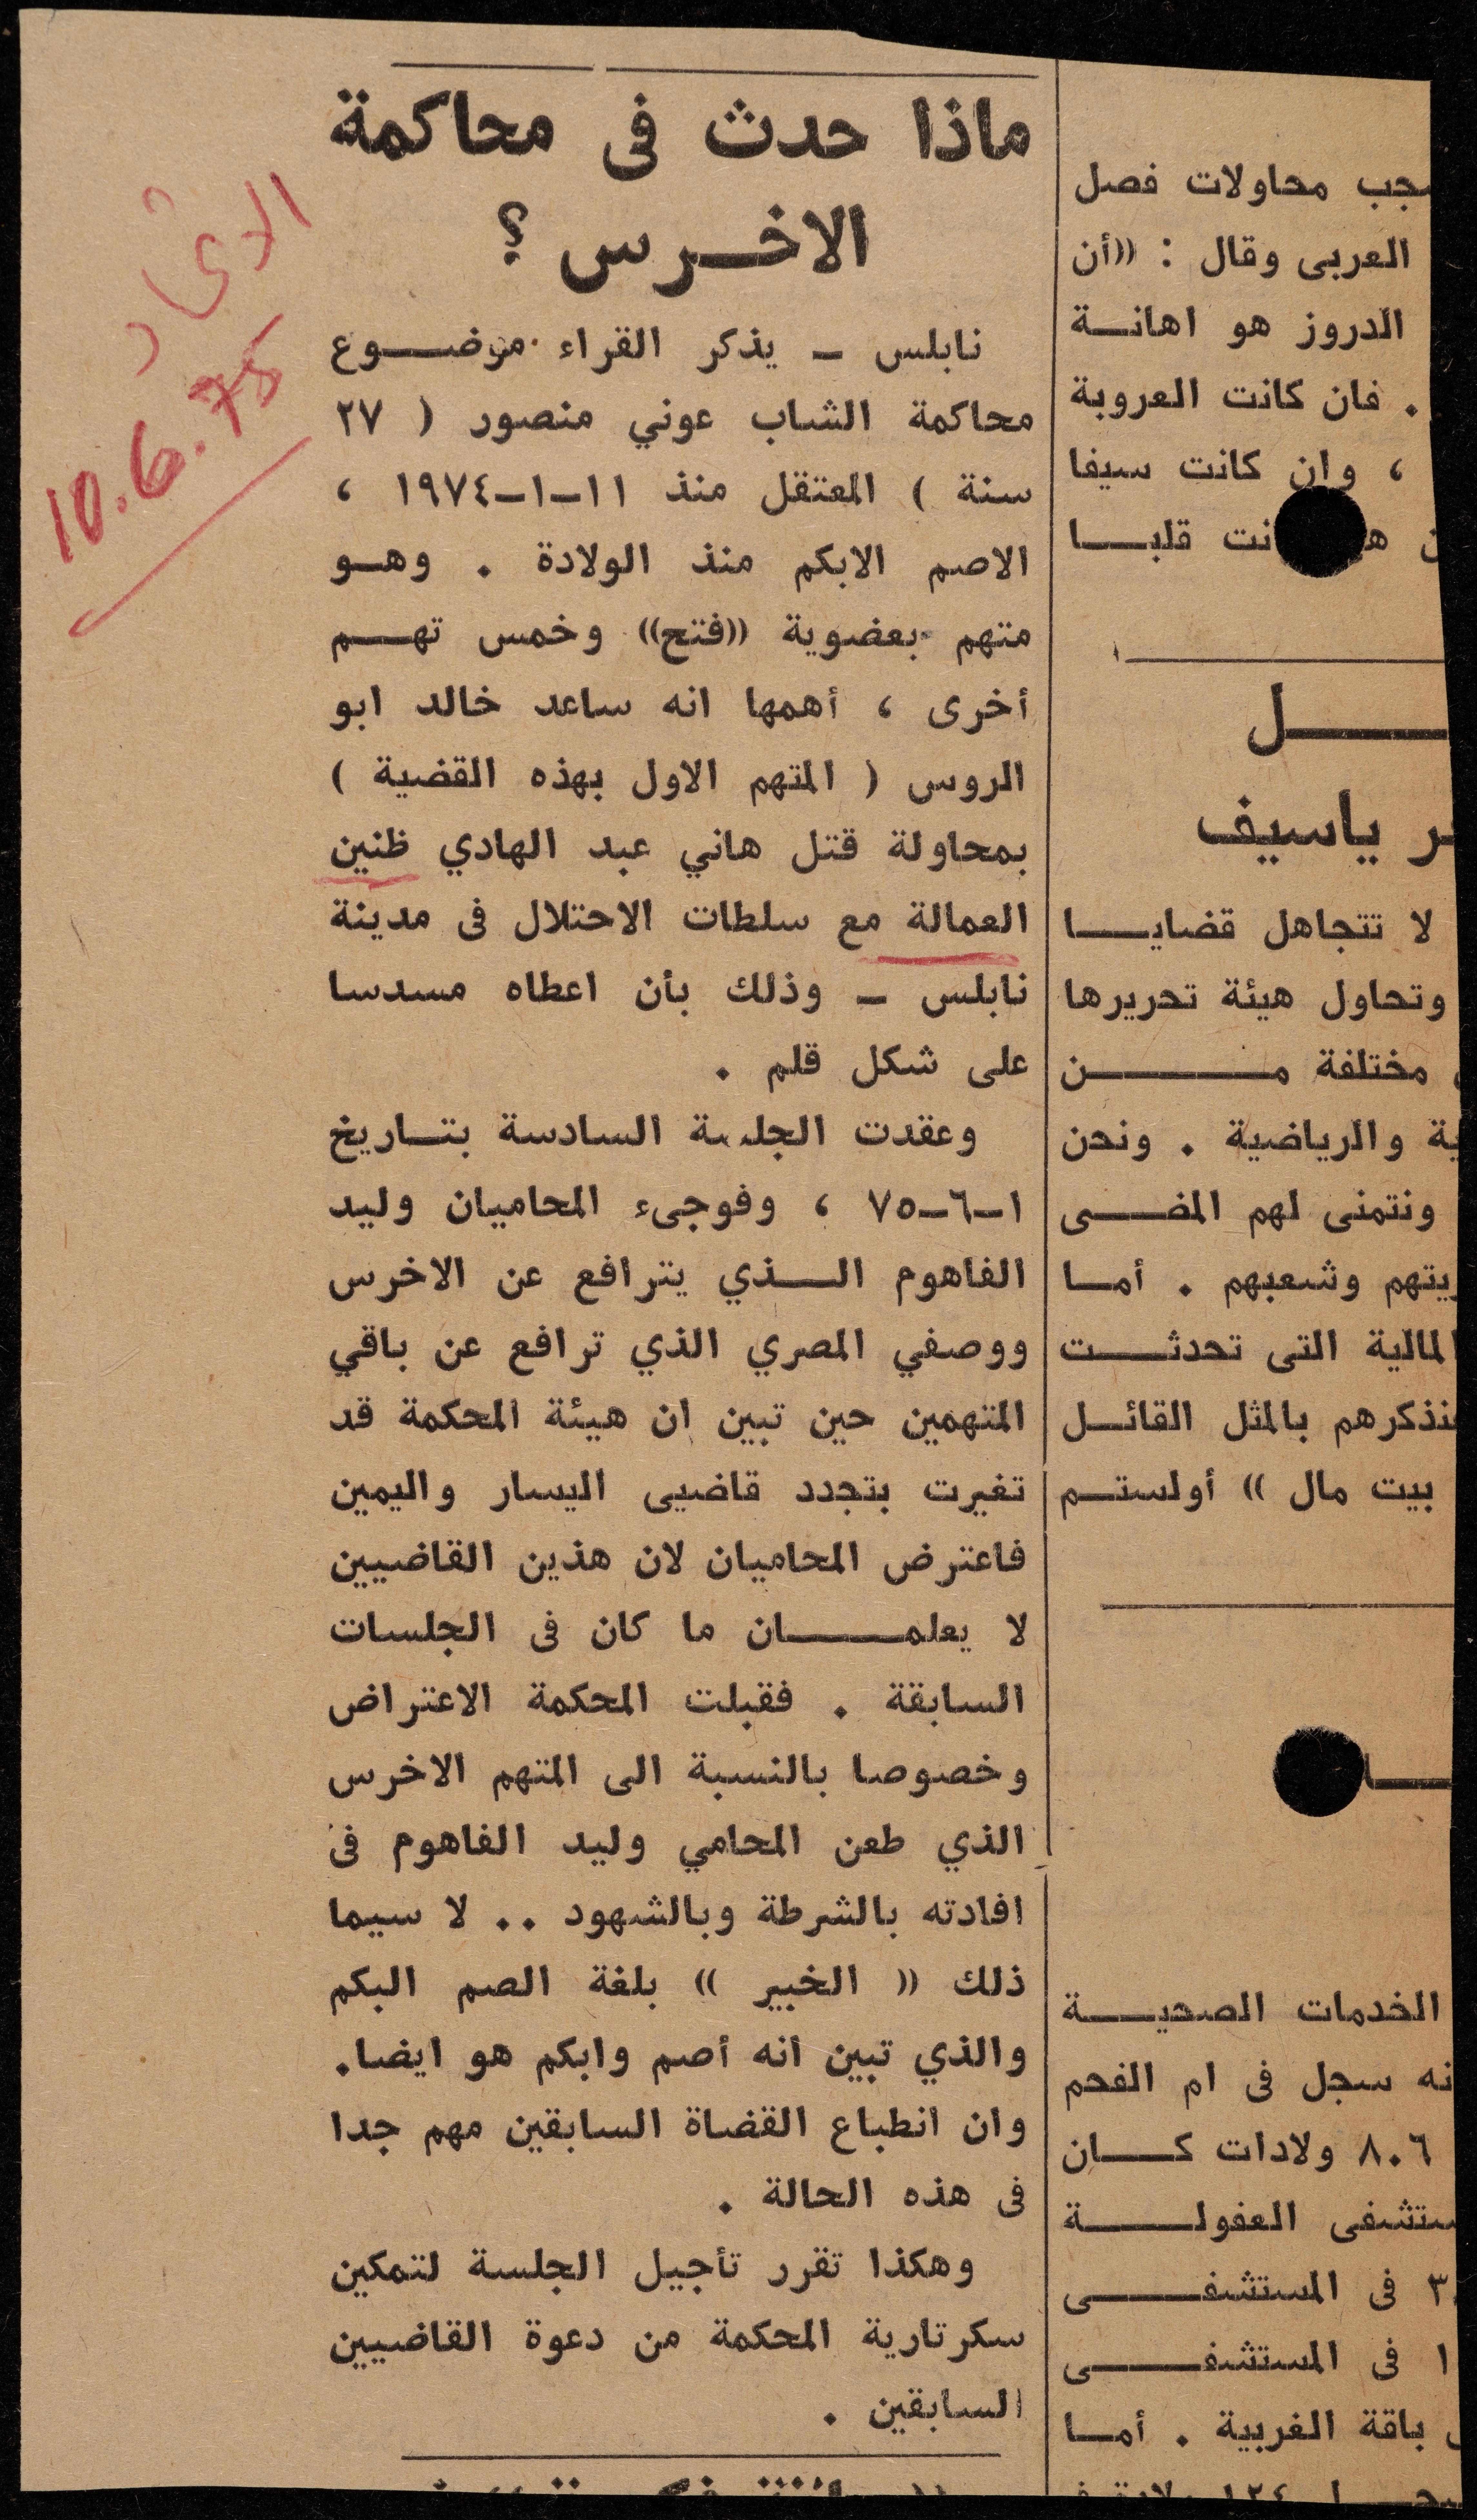 ماذا حدث فى محاكمة
الاخـــرس ؟
نابلس ــ يذكر القراء موضـــوع
محاكمة الشاب عوني منصور ( ٢٧
سنة ) المعتقل منذ ١١ــ١ــ١٩٧٤ ،
الاصم الابكم منذ الولادة . وهــو
متهم بعضوية ((فتح)) وخمس تهـــم
أخرى ، أهمها انه ساعد خالد ابو
الروس ( المتهم الاول بهذه القضية )
بمحاولة قتل هاني عبد الهادي ظنين
العمالة مع سلطات الاحتلال فى مدينة
نابلس ــ وذلك بأن اعطاه مسدسا
على شكل قلم .
وعقدت الجلسة السادسة بتــاريخ
١ــ٦ــ٧٥ ، وفوجىء المحاميان وليد
الفاهوم الـــذي يترافع عن الاخرس
ووصفي المصري الذي ترافع عن باقي
المتهمين حين تبين ان هيئة المحكمة قد
تغيرت بتجدد قاضيى اليسار واليمين
فاعترض المحاميان لان هذين القاضيين
لا يعلمـــــان ما كان فى الجلسات
السابقة . فقبلت المحكمة الاعتراض
وخصوصا بالنسبة الى المتهم الاخرس
الذي طعن المحامي وليد الفاهوم فى
افادته بالشرطة وبالشهود .. لا سيما
ذلك (( الخبير )) بلغة الصم البكم
والذي تبين انه أصم وابكم هو ايضا.
وان انطباع القضاة السابقين مهم جدا
فى هذه الحالة .
وهكذا تقرر تأجيل الجلسة لتمكين
سكرتارية المحكمة من دعوة القاضيين
السابقين .
الاتحاد
10.6.75
محاولات فصل
العربى وقال : ((أن
الدروز هو اهانــة
. فان كانت العروبة
، وان كانت سيفا
قلبـــا
ـــل
ياسيف
لا تتجاهل قضايـــا
وتحاول هيئة تحريرها
مختلفة مـــــن
والرياضية . ونحن
ونتمنى لهم المضـــى
وشعبهم . أمـا
المالية التى تحدثـــت
بالمثل القائــل
بيت مال )) أولستــم
الخدمات الصحيـــة
سجل فى ام الفحم
٨٠٦ ولادات كـــان
العفولـــــة
فى المستشفـــــى
١ فى المستشفـــــى
باقة الغربية . أمـا